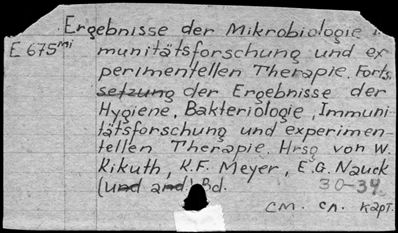 Ergebnisse der Mikrobiologie
E 675 Mi munitätsforschung und ex
perimentellen Therapie. Forts.
setzung der Ergebnisse der
Hygiene, Bakteriologie, Immuni
tätsforschung und experimen-
tellen Therapie. Hrsg von W.
Kikuth, K.F. Meyer, E.G. Nauck
(und and.) Bd. 30-34.
см. сл. карт.